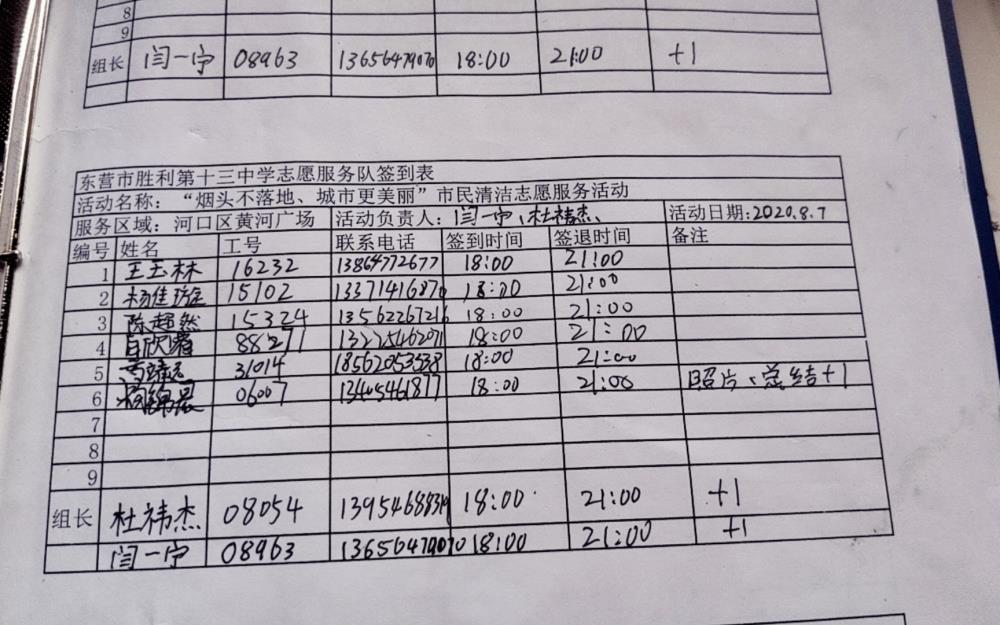 8
9
组长 闫一宁 08963 13656479070 18:00 21:00 +1
东营市胜利第十三中学志愿服务队签到表
活动名称: “烟头不落地、城市更美丽”市民清洁志愿服务活动
服务区域: 河口区黄河广场 活动负责人: 闫一宁、杜祎杰 活动日期:2020.8.7
编号 姓名 工号 联系电话 签到时间 签退时间 备注
1 王玉林 16232 13864772677 18:00 21:00
2 杨佳璇 15102 13371416870 18:00 21:00
3 陈超然 15324 13562267216 18:00 21:00
4 88277 18:00 21:00
5 31014 18562053538 18:00 21:00
6 杨锦晨 06007 13405461877 18:00 21:00 照片、总结+1
7
8
9
组长 杜祎杰 08054 18:00 21:00 +1
闫一宁 08963 13656479070 18:00 21:00 +1